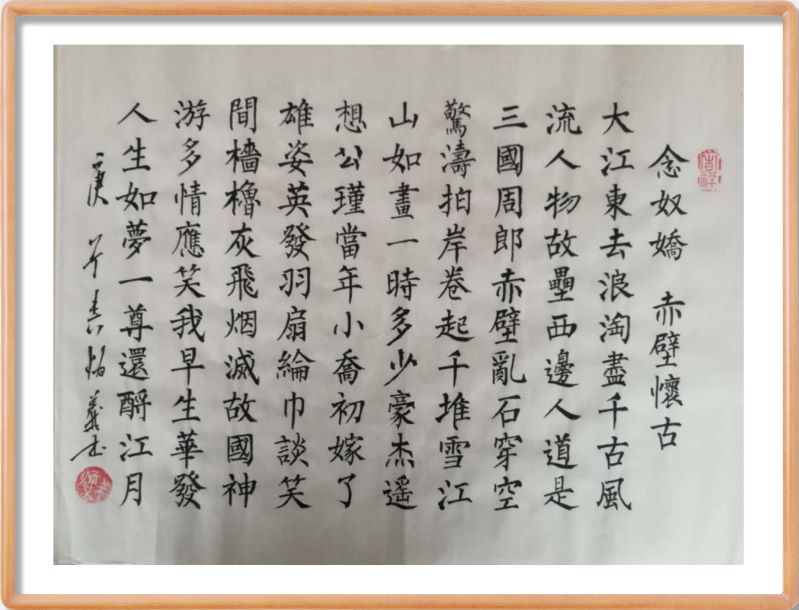 念奴嬌 赤壁懷古
大江東去浪淘盡千古風
流人物故壘西邊人道是
三國周郎赤壁亂石穿空
驚濤拍岸卷起千堆雪江
山如畫一時多少豪杰遥
想公瑾當年小喬初嫁了
雄姿英發羽扇綸巾談笑
間檣櫓灰飛烟滅故國神
游多情應笑我早生華發
人生如夢一尊還酹江月